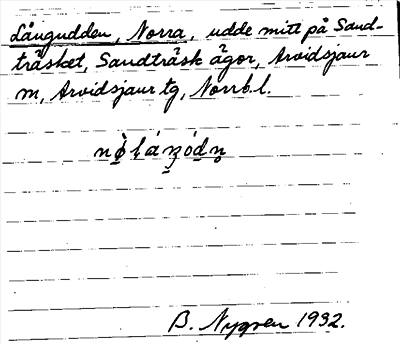 Långudden, Norra, udde mitt på Sand-
träsket, Sandträsk ägor, Arvidsjaur
m, Arvidsjaur tg, Norrb. l.
B. Nygren 1932.